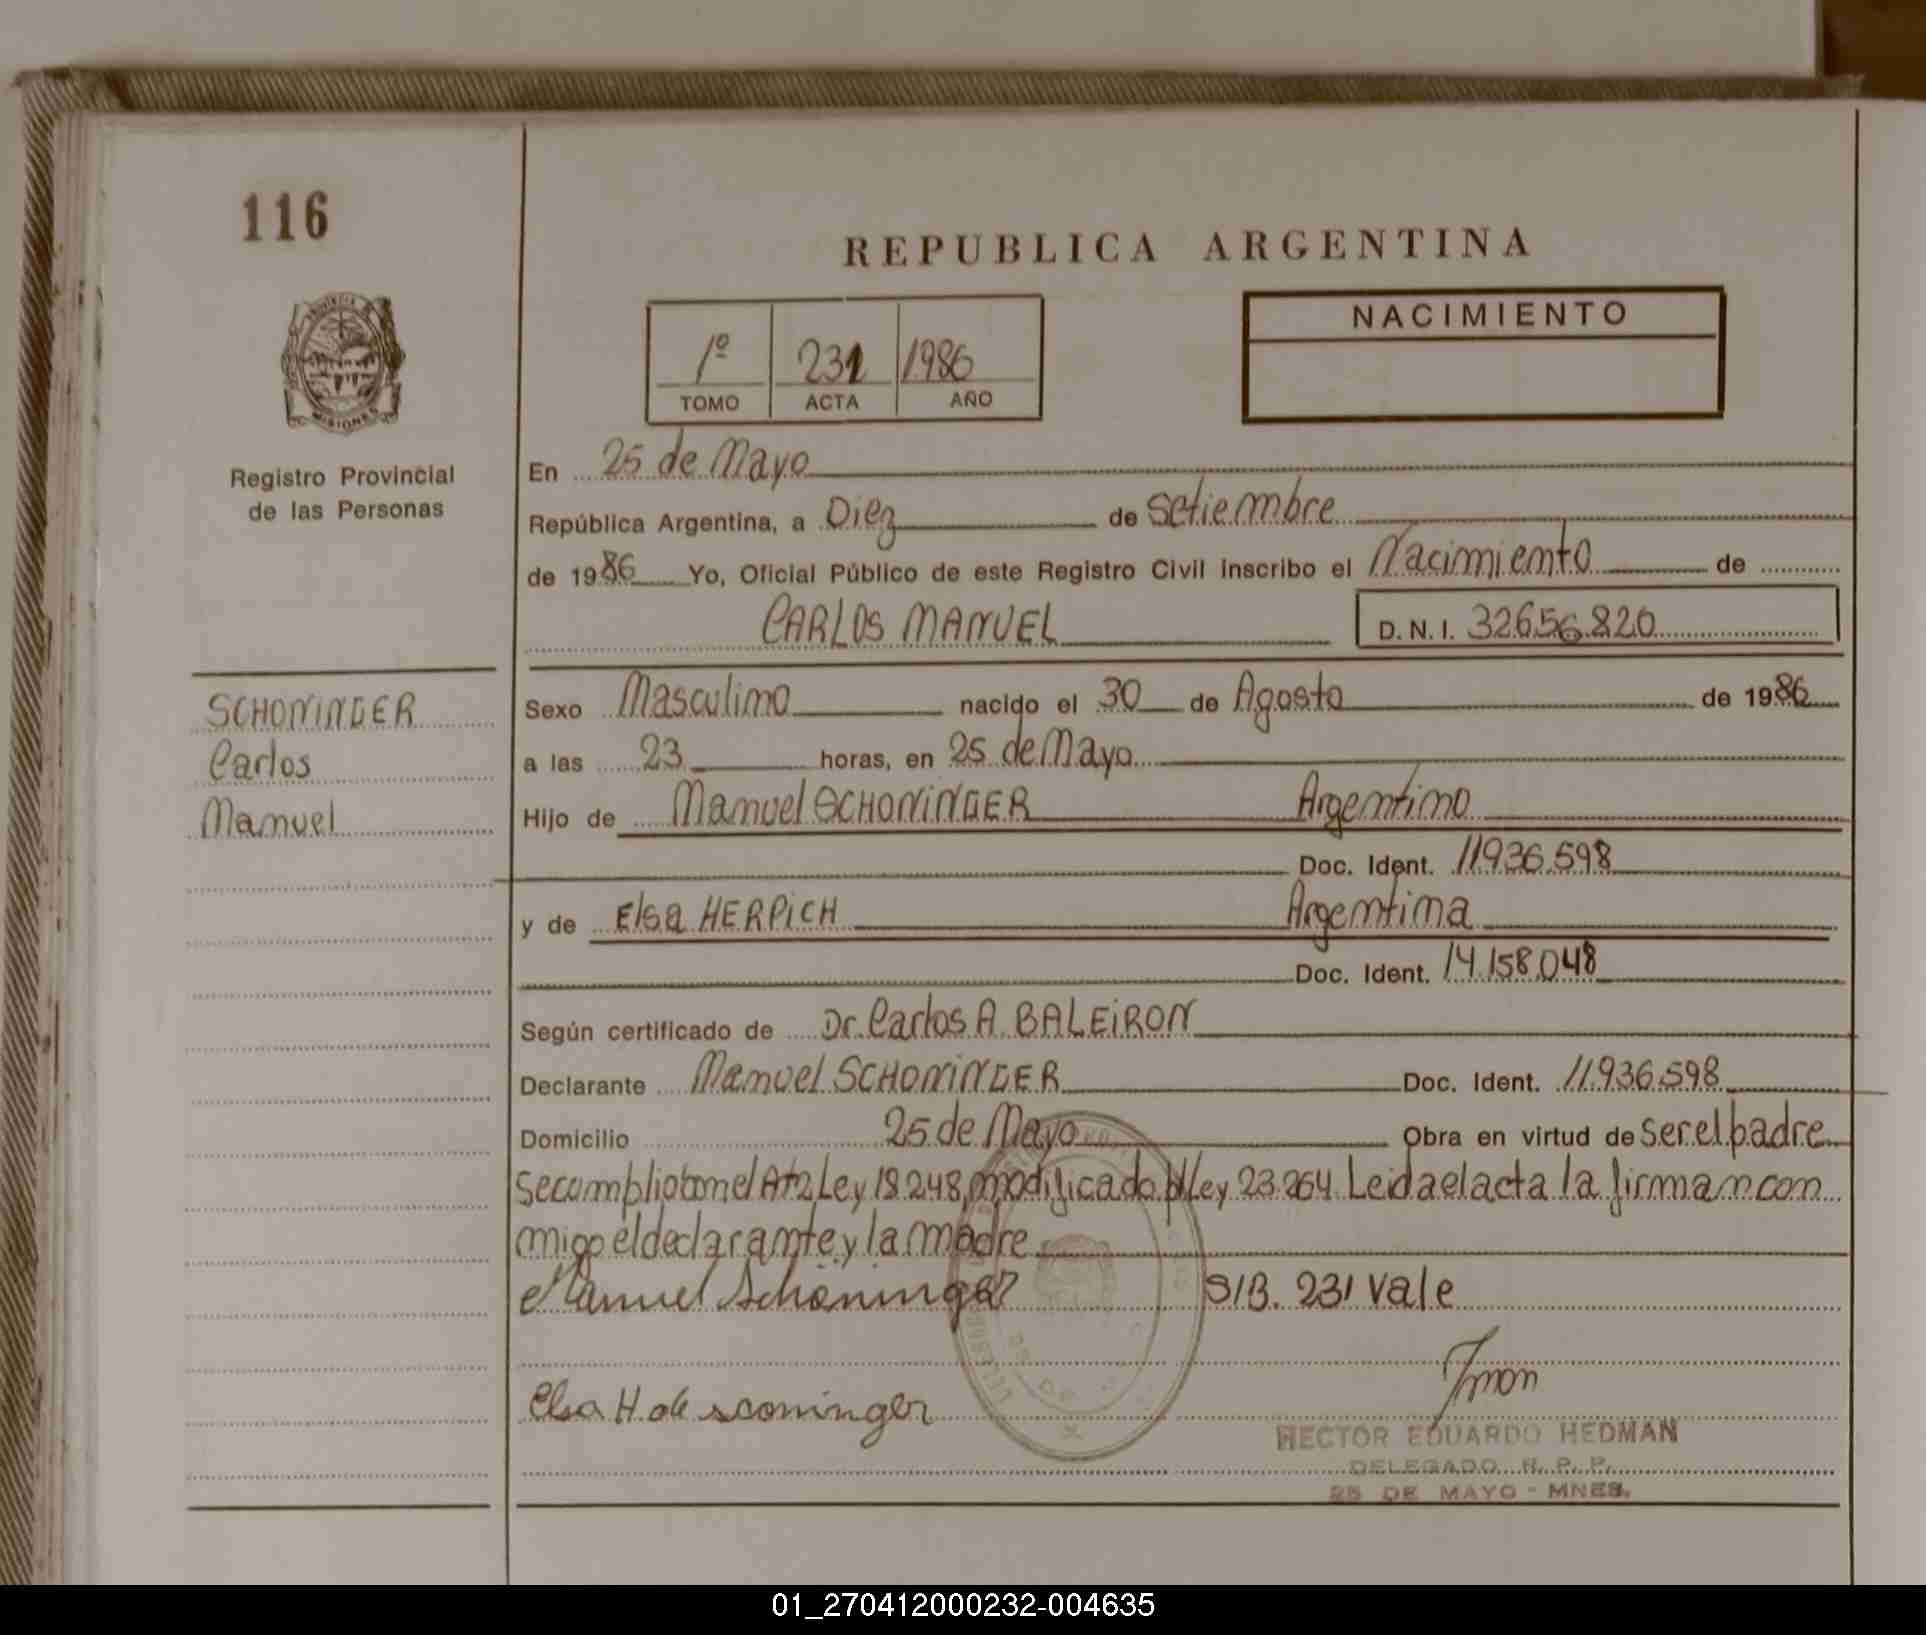 116
REPUBLICA ARGENTINA
NACIMIENTO
1º 231 1986
TOMO ACTA AÑO
PROVINCIA DE
MISIONES
Registro Provincial
de las Personas
En 25 de Mayo
República Argentina, a Diez de Setiembre
de 1986 Yo, Oficial Público de este Registro Civil inscribo el Nacimiento de
CARLOS MANUEL D.N.I. 32656.820
SCHONINGER
Carlos
Manuel
Sexo Masculino nacido el 30 de Agosto de 1986
a las 23 horas, en 25 de Mayo
Hijo de Manuel SCHONINGER Argentino
Doc. Ident. 11936.598
y de Elsa HERPiCH Argentina
Doc. Ident. 14.158.048
Según certificado de Dr. Carlos A. BALEiRON
Declarante Manuel SCHONINGER Doc. Ident. 11.936.598
Domicilio 25 de Mayo Obra en virtud de ser el padre
Se cumplio con el Art 2 Ley 18.248, modificado p/Ley 23.264. Leida el acta la firman con
migo el declarante y la madre
Manuel Schöninger S/B. 231 Vale
Elsa H. de sconinger
HECTOR EDUARDO HEDMAN
DELEGADO R. P. P.
25 DE MAYO - MNES.
01_270412000232-004635